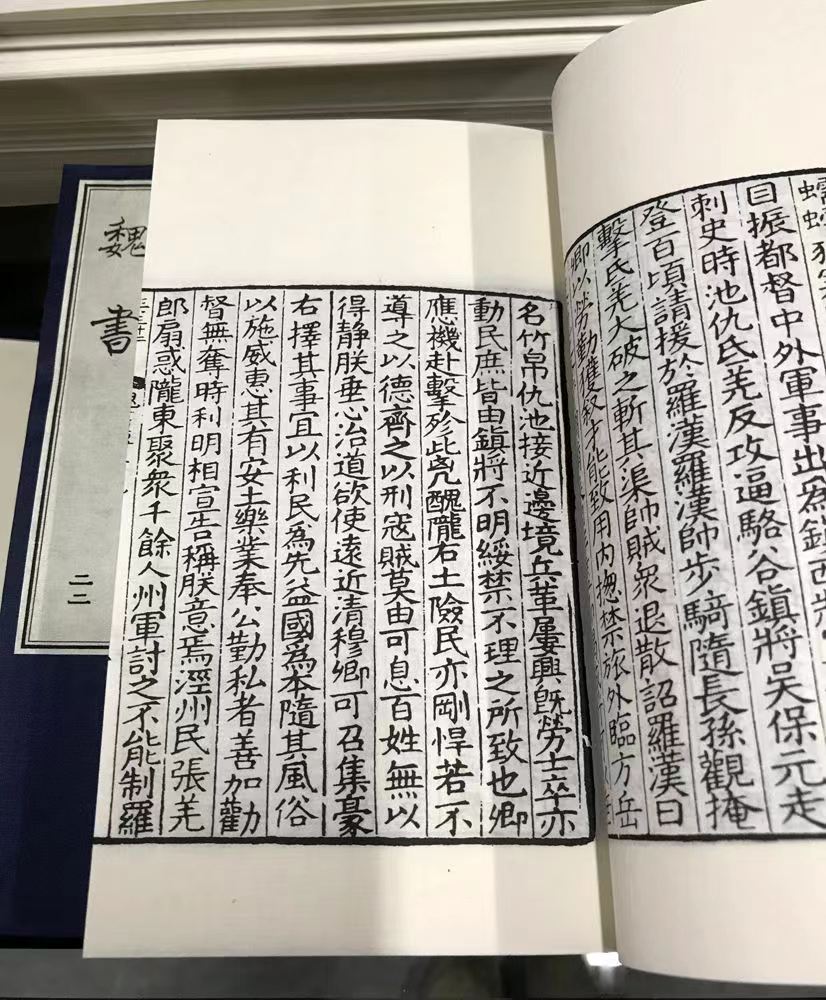 蠕蠕犯塞
目振都督中外軍事出為鎮西將
刺史時池仇氐羌反攻逼駱谷鎮將吴保元走
登百頃請援於羅漢羅漢帥步騎隨長孫觀掩
擊氐羌大破之斬其渠帥賊衆退散詔羅漢曰
卿以勞勤獲叙才能致用内揔禁旅外臨方岳
名竹帛仇池接近邊境兵革屢興旣勞士卒亦
動民庶皆由鎮將不明綏禁不理之所致也卿
應機赴擊殄此兇醜隴右土險民亦剛悍若不
導之以德齊之以刑寇賊莫由可息百姓無以
得静朕垂心治道欲使遠近清穆卿可召集豪
右擇其事宜以利民為先益國為本隨其風俗
以施威惠其有安土樂業奉公勤私者善加勸
督無奪時利明相宣告稱朕意焉涇州民張羌
郎扇惑隴東聚衆千餘人州軍討之不能制羅
魏書
二二